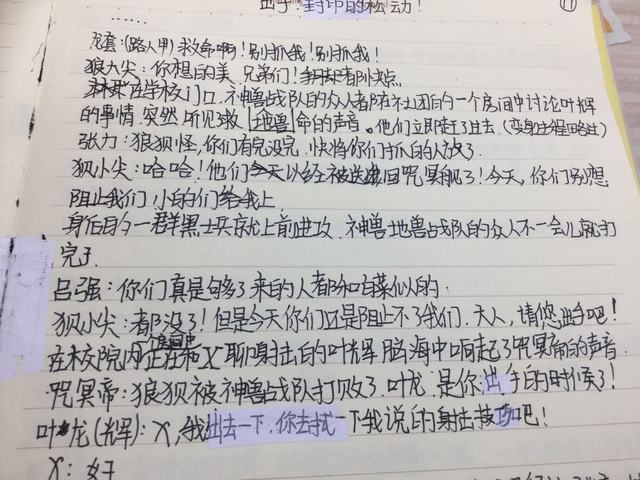 出手:封印的松动!
⑪
……
龙套:(路人甲)救命啊!别抓我!别抓我!
狼大尖:你想的美,兄弟们!动点
在学校门口.神兽战队的众人都在社团的一个房间中讨论叶辉
的事情.突然听见救命的声音。他们立即赶了过去.(变身过程略过)
张力:狼狈怪,你们有完没完.快将你们抓的人放了.
狈小尖:哈哈!他们今天以经被送回咒冥殿了!今天,你们别想
阻止我们 小的们给我上.
身后的一群黑士兵就上前进攻.神兽地兽战队的众人不一会儿就打
完了.
吕强:你们真是够了.来的人都和白菜似的.
狈小尖:都没了!但是今天你们还是阻止不了我们.大人,请您出手吧!
在校院内正在和X聊射击的叶辉 脑海中响起了咒冥帝的声音.
房间中
咒冥帝:狼狈被神兽战队打败了.叶龙.是你出手的时候了!
叶龙(辉):X,我出去一下.你去扰一下我说的射击技巧吧!
X:好